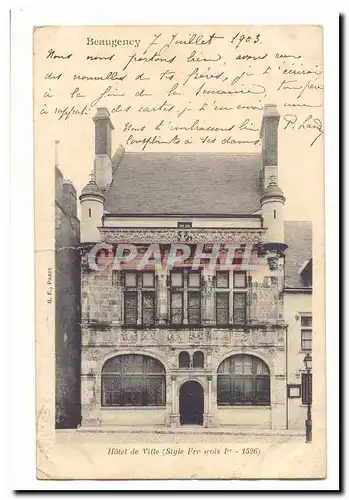 Beaugency 7 Juillet 1903.
Nous nous portons bien, avons eu
des nouvelles de tes frères, je t'écrirai
à la fin de la semaine ton père
à rapporté des cartes je t'en envoie une
Nous t'embrassons bien P.
Compliments à ces dames.
CPAPHIL
B. F., PARIS
Hôtel de Ville (Style François Ier - 1526)